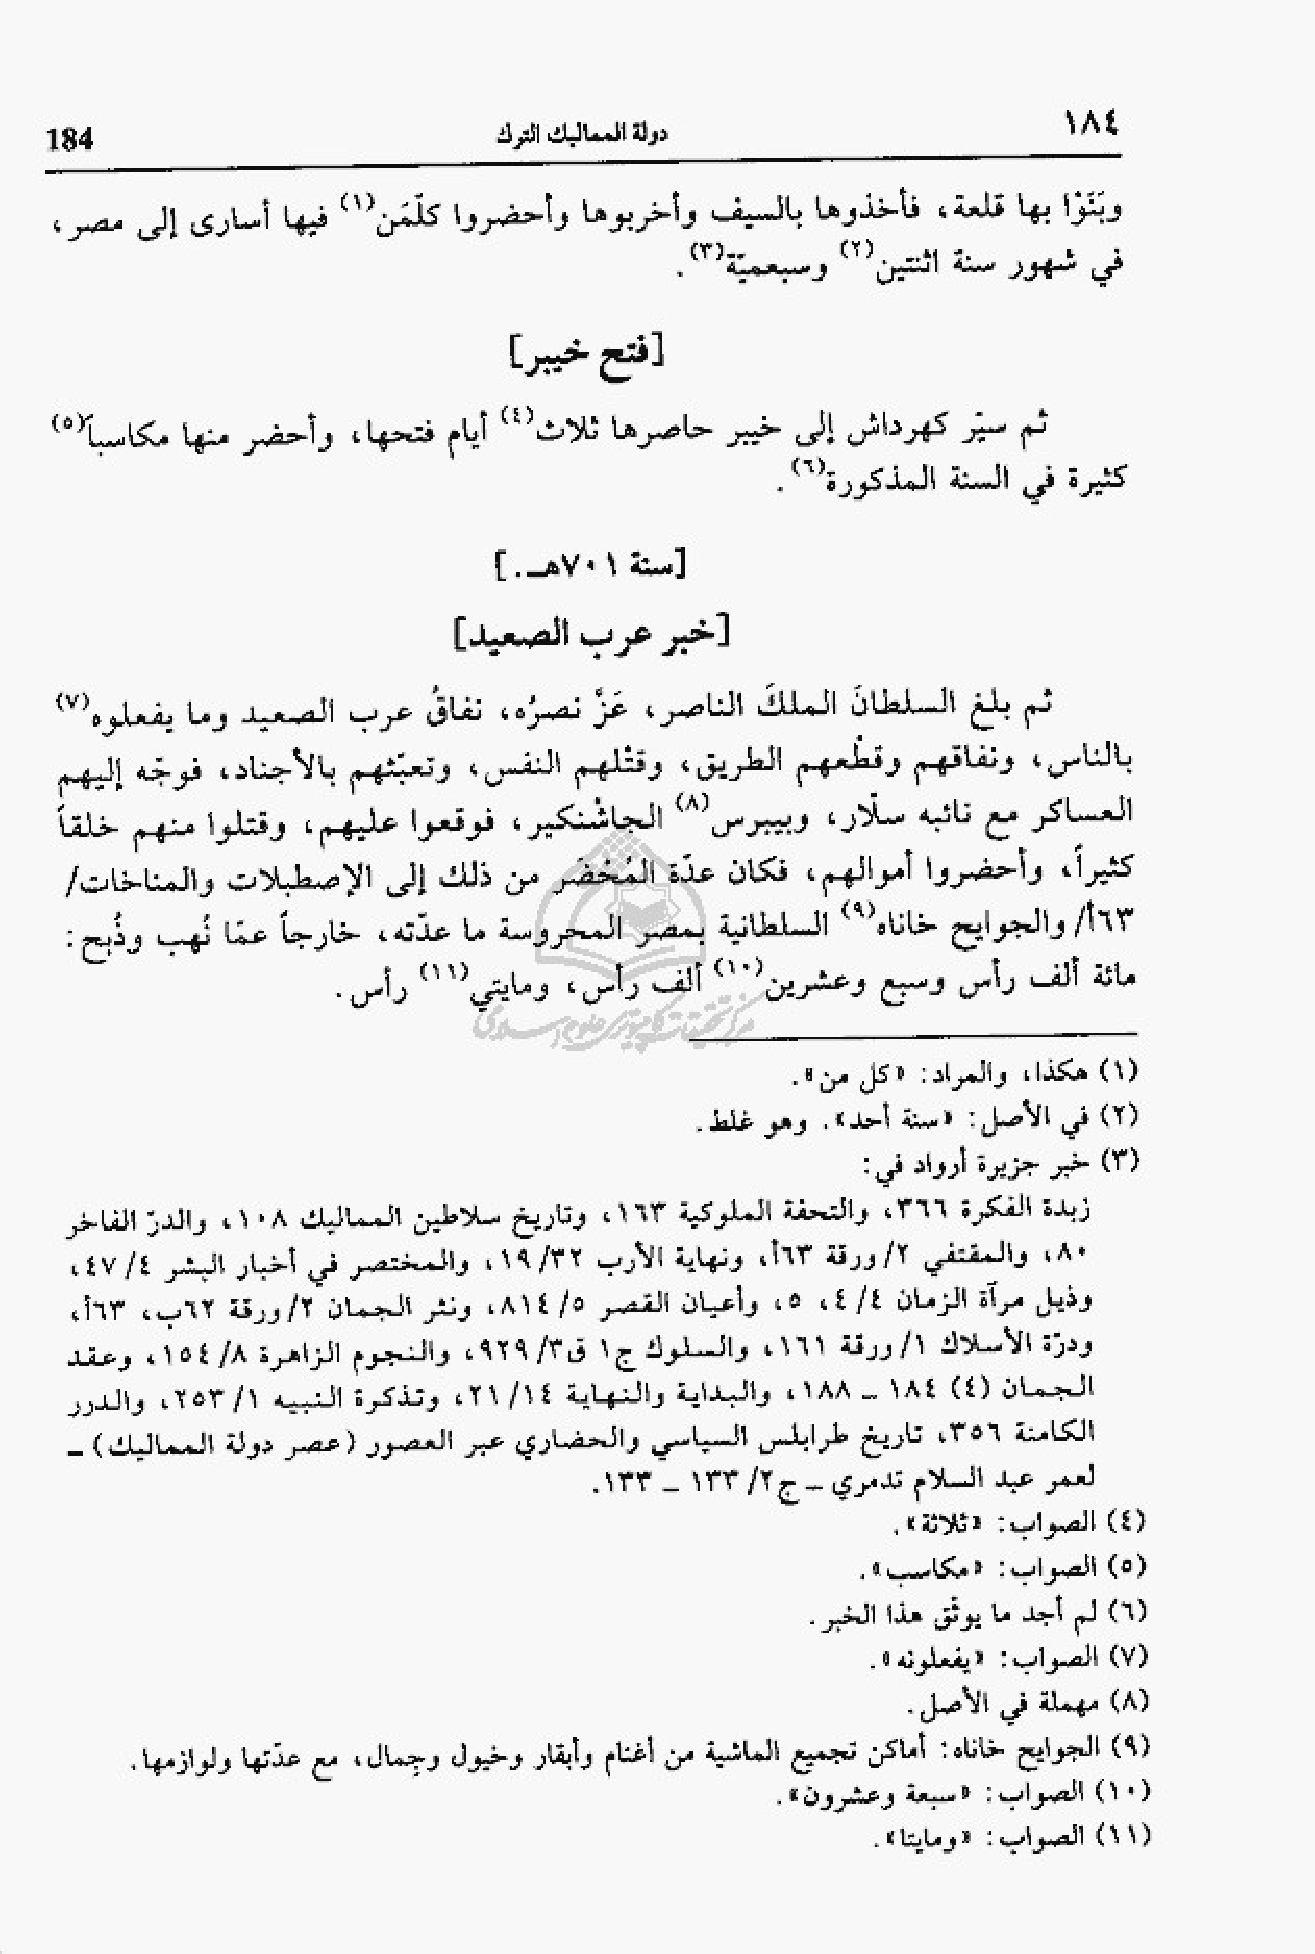 ١٨٤
دولة المماليك الترك
184
وبَنَوْا بها قلعة، فأخذوها بالسيف وأخربوها وأحضروا كلّمَن(١) فيها أسارى إلى مصر،
في شهور سنة اثنتين(٢) وسبعميّة(٣).
[فتح خيبر]
ثم سيّر كهرداش إلى خيبر حاصرها ثلاث(٤) أيام فتحها، وأحضر منها مكاسباً(٥)
كثيرة في السنة المذكورة(٦).
[سنة ٧٠١هـ.]
[خبر عرب الصعيد]
ثم بلغ السلطانَ الملكَ الناصر، عَزَّ نصرُه، نفاقُ عرب الصعيد وما يفعلوه(٧)
بالناس، ونفاقهم وقطْعهم الطريق، وقتْلهم النفس، وتعبّثهم بالأجناد، فوجّه إليهم
العساكر مع نائبه سلّار، وبيبرس(٨) الجاشْنكير، فوقعوا عليهم، وقتلوا منهم خلقاً
كثيراً، وأحضروا أموالهم، فكان عدّة المُحْضَر من ذلك إلى الإصطبلات والمناخات/
٦٣أ/ والجوايح خاناه(٩) السلطانية بمصر المحروسة ما عدّته، خارجاً عمّا نُهب وذُبح:
مائة ألف رأس وسبع وعشرين(١٠) ألف رأس، ومايتي(١١) رأس.
مركز تحقيقات كامپيوتری علوم اسلامی
(١) هكذا، والمراد: «كل من».
(٢) في الأصل: «سنة أحد». وهو غلط.
(٣) خبر جزيرة أرواد في:
زبدة الفكرة ٣٦٦، والتحفة الملوكية ١٦٣، وتاريخ سلاطين المماليك ١٠٨، والدرّ الفاخر
٨٠، والمقتفي ٢/ورقة ٦٣أ، ونهاية الأرب ١٩/٣٢، والمختصر في أخبار البشر ٤/٤٧،
وذيل مرآة الزمان ٤/٤، ٥، وأعيان القصر ٥/٨١٤، ونثر الجمان ٢/ورقة ٦٢ب، ٦٣أ،
ودرّة الأسلاك ١/ورقة ١٦١، والسلوك ج١ ق٣/٩٢٩، والنجوم الزاهرة ٨/١٥٤، وعقد
الجمان (٤) ١٨٤ ـ ١٨٨، والبداية والنهاية ٢١/١٤، وتذكرة النبيه ١/٢٥٣، والدرر
الكامنة ٣٥٦، تاريخ طرابلس السياسي والحضاري عبر العصور (عصر دولة المماليك) ـ
لعمر عبد السلام تدمري ـ ج٢/١٣٣ ـ ١٣٣.
(٤) الصواب: «ثلاثة».
(٥) الصواب: «مكاسب».
(٦) لم أجد ما يوثّق هذا الخبر.
(٧) الصواب: «يفعلونه».
(٨) مهملة في الأصل.
(٩) الجوايح خاناه: أماكن تجميع الماشية من أغنام وأبقار وخيول وجِمال، مع عدّتها ولوازمها.
(١٠) الصواب: «سبعة وعشرون».
(١١) الصواب: «ومايتا».